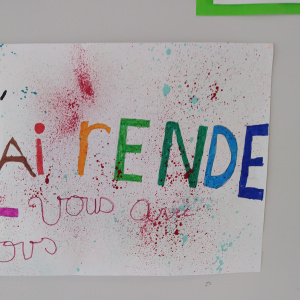 Ai rENDE
- vous avec
ous